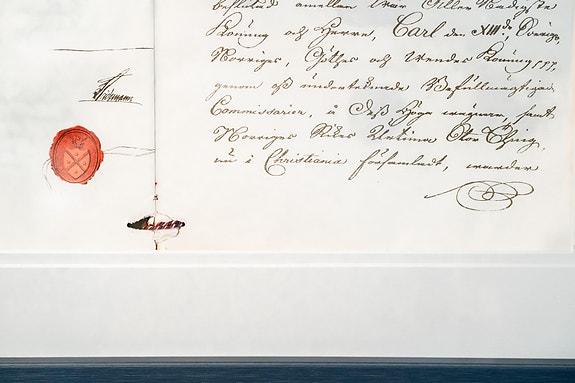 beslutad emellan Wår Aller Nådigste
Konung och Herre, Carl den XIII:de, Sveriges,
Norriges, Göthes och Wendes Konung &&&,
genom oss undertecknade Befullmägtigade
Commissarier, å Dess Höga wägnar, samt
Norriges Rikes Urtima Stor Thing,
nu i Christiania församladt, worder